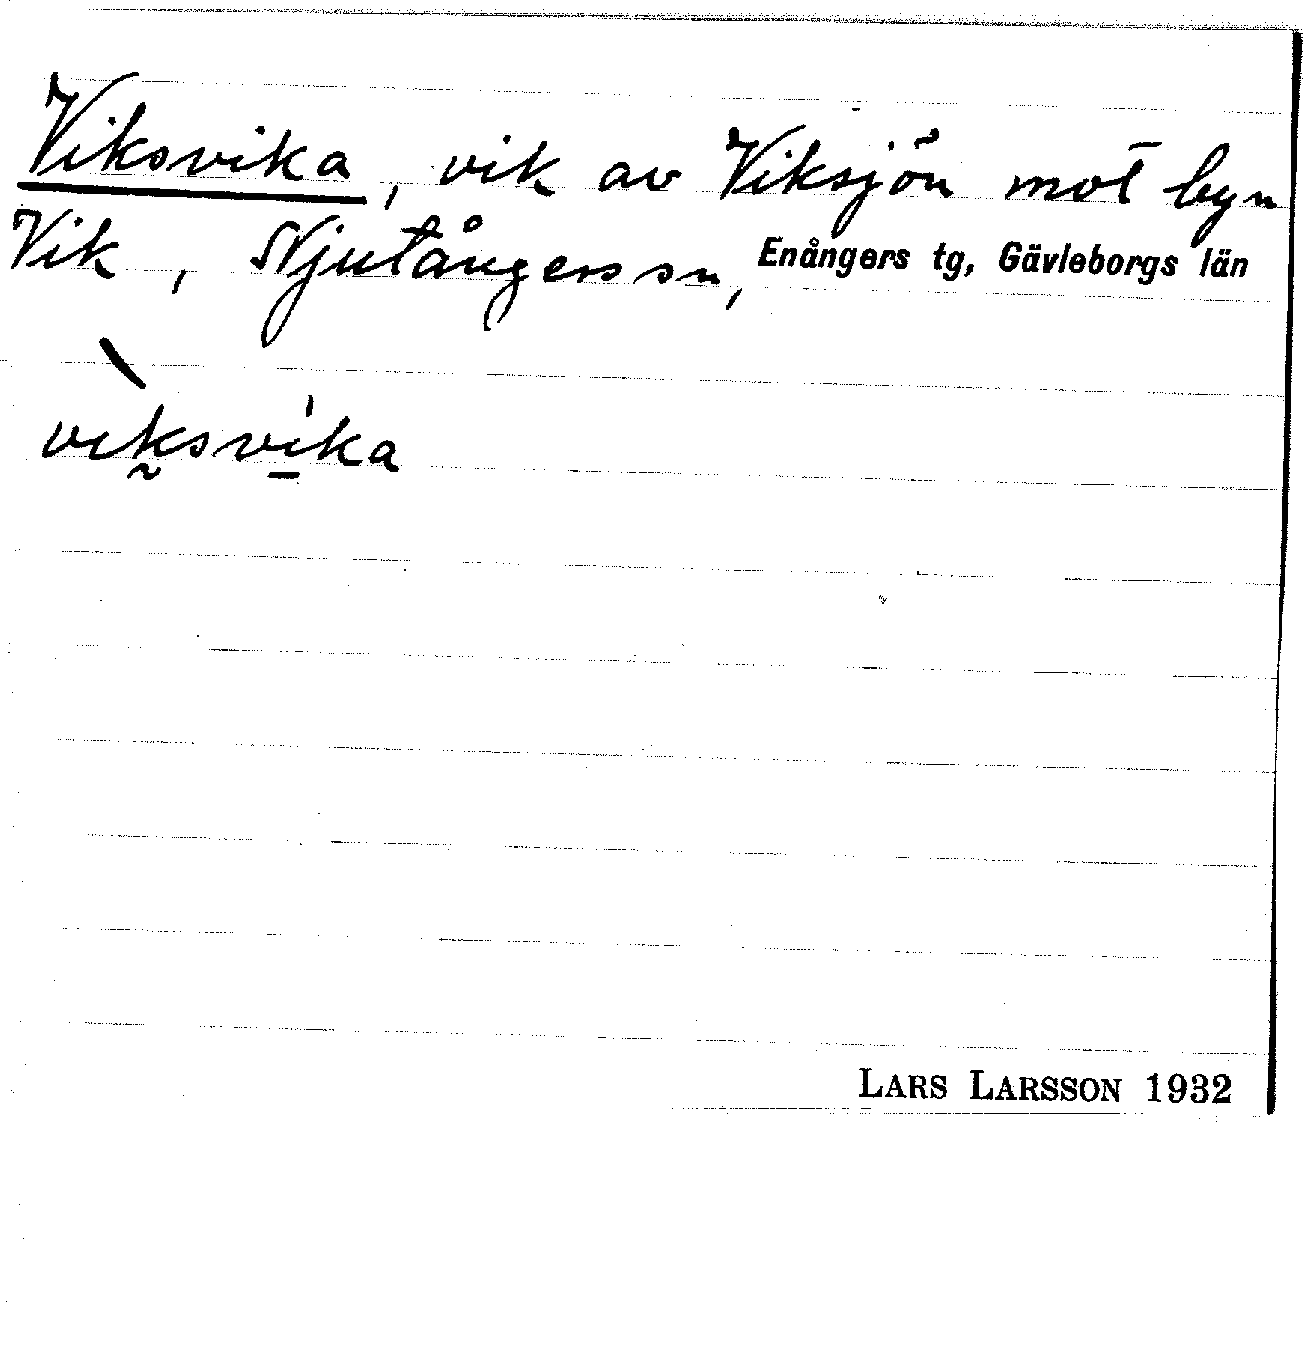 Viksvika, vik av Viksjön mot byn
Vik, Njutångers sn, Enångers tg, Gävleborgs län
viksvika
LARS LARSSON 1932